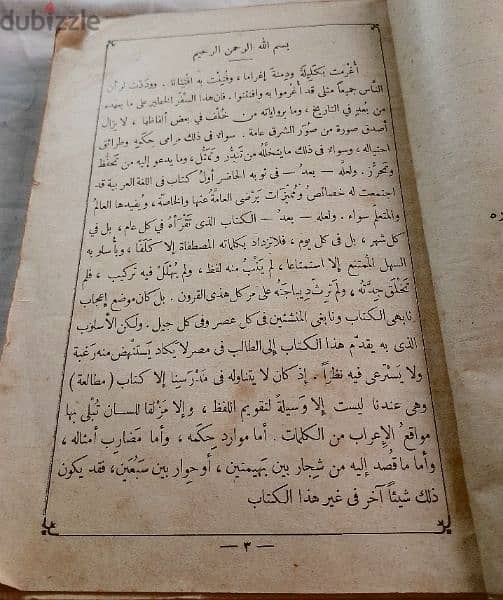 dubizzle
بسم الله الرحمن الرحيم
أُغْرِمتُ بِكَليلةَ ودِمنةَ إغراما، وفُتِنتُ به افتتانًا. ووَدَدْتُ لو أن
النَّاس جميعًا مثلى قد أُغرِموا به وافتتنوا. فان هذا السِّفْر الخطير على ما بعهده
من بُعدٍ فى التاريخ، وما برواياته من خُلْف فى بعض ألفاظها، لا يزال
أصدق صورة من صُوَر الشرق عامة. سواءٌ فى ذلك مرامى حِكَمِه وطرائق
احتياله، وسواءٌ فى ذلك ما يتخلَّله من تَبَدُّر وتَمَثُّل، وما يدعو إليه من تحفُّظ
وتحرُّز. ولعلَّه — بعدُ — فى ثوبه الحاضر أولُ كتاب فى اللغة العربية قد
اجتمعت له خصائصُ ومُميِّزات يَرْضى العامَّةُ عنها والخاصَّة، ويُفيدها العالمُ
والمتعلِّم سواء. ولعلَّه — بعدُ — الكتابُ الذى تَقْرَأُه فى كل عام، بل فى
كل شهر، بل فى كل يوم، فلا تزداد بكلماته المصطفاة إلا كَلَفًا، وبأسلوبه
السهل الممتنِع إلا استمتاعا، لم يَكْبُ منه لفظ، ولم يُهَلْهَل فيه تركيب، فلم
تَخْلَق جِدَّتُه، ولم تَرِثَّ ديباجته على مَرِّ كل هذى القرون. بل كان موضع إعجاب
نابهى الكتاب ونابغى المنشئين فى كل عصر وفى كل جيل. ولكن الأسلوب
الذى به يقدّم هذا الكتاب إلى الطالب فى مصر لا يكاد يَستنْهِض منه رَغبة
ولا يَسْتَرعى فيه نظرًا. إذ كان لا يتناوله فى مَدْرسِنا إلا كتاب (مطالعة)
وهى عندنا ليست إلا وسيلةً لتقويم اللفظ، وإلا مَزْلقا للسان تُبْلى بها
مواقعُ الإعراب من الكلمات. أما مواردُ حِكَمِه، وأما مَضَارِب أمثاله،
وأما ما قُصد إليه من شِجار بين بَهيمتين، أو حِوار بين سَبُعَين، فقد يكون
ذلك شيئًا آخر فى غير هذا الكتاب
— ٣ —